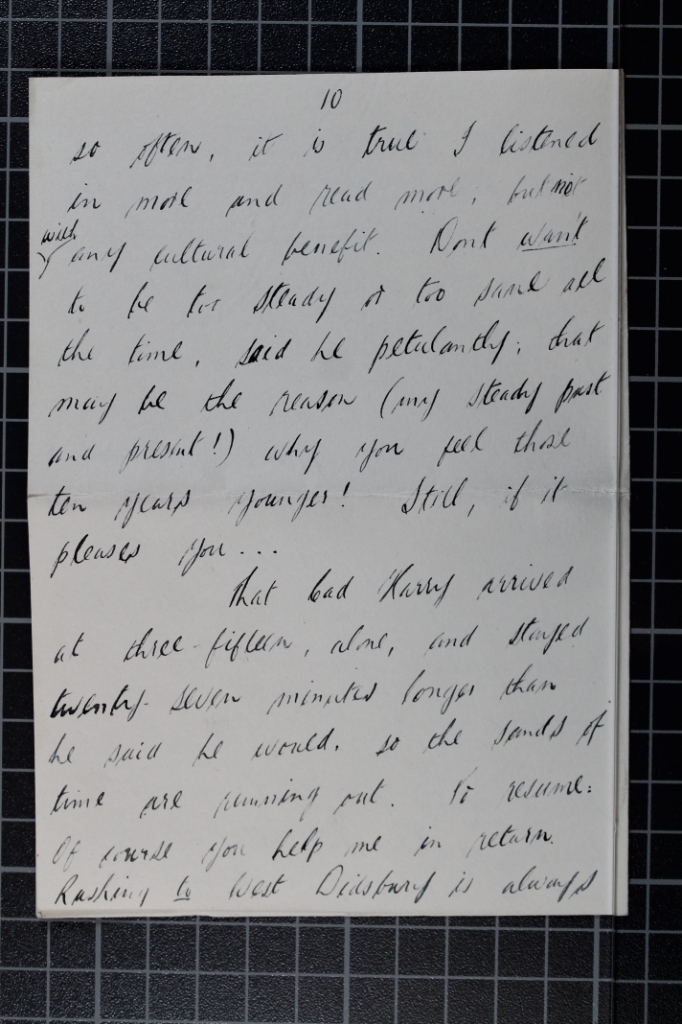 10
so often, it is true I listened
in more and read more, but not
with
any cultural benefit. Dont want
to be too steady or too sane all
the time, said he petulantly; that
may be the reason (my steady past
and present!) why you feel those
ten years younger! Still, if it
pleases you...
That bad Harry arrived
at three-fifteen, alone, and stayed
twenty-seven minutes longer than
he said he would. so the sands of
time are running out. To resume:
Of course you help me in return.
Rushing to West Didsbury is always